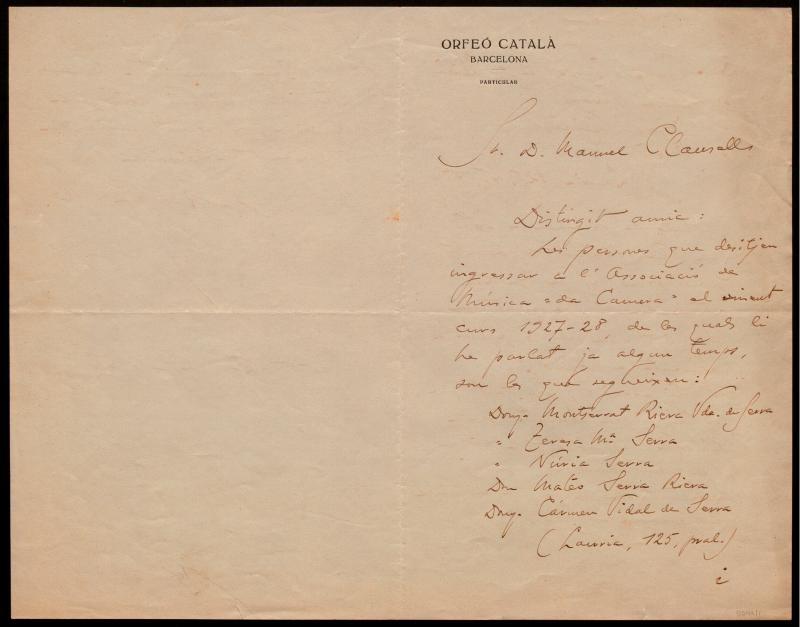 ORFEÓ CATALÀ
BARCELONA
PARTICULAR
Sr. D. Manuel Clausells
Distingit amic:
Les persones que desitjen
ingressar a l'Associació de
Música "da Camera" el vinent
curs 1927-28, de les quals li
he parlat ja algun temps,
son les que segueixen:
Dony. Montserrat Riera Vda. de Serra
" Teresa Mª Serra
" Núria Serra
Dn Mateo Serra Riera
Dony. Cármen Vidal de Serra
(Lauria, 125, pral.)
i